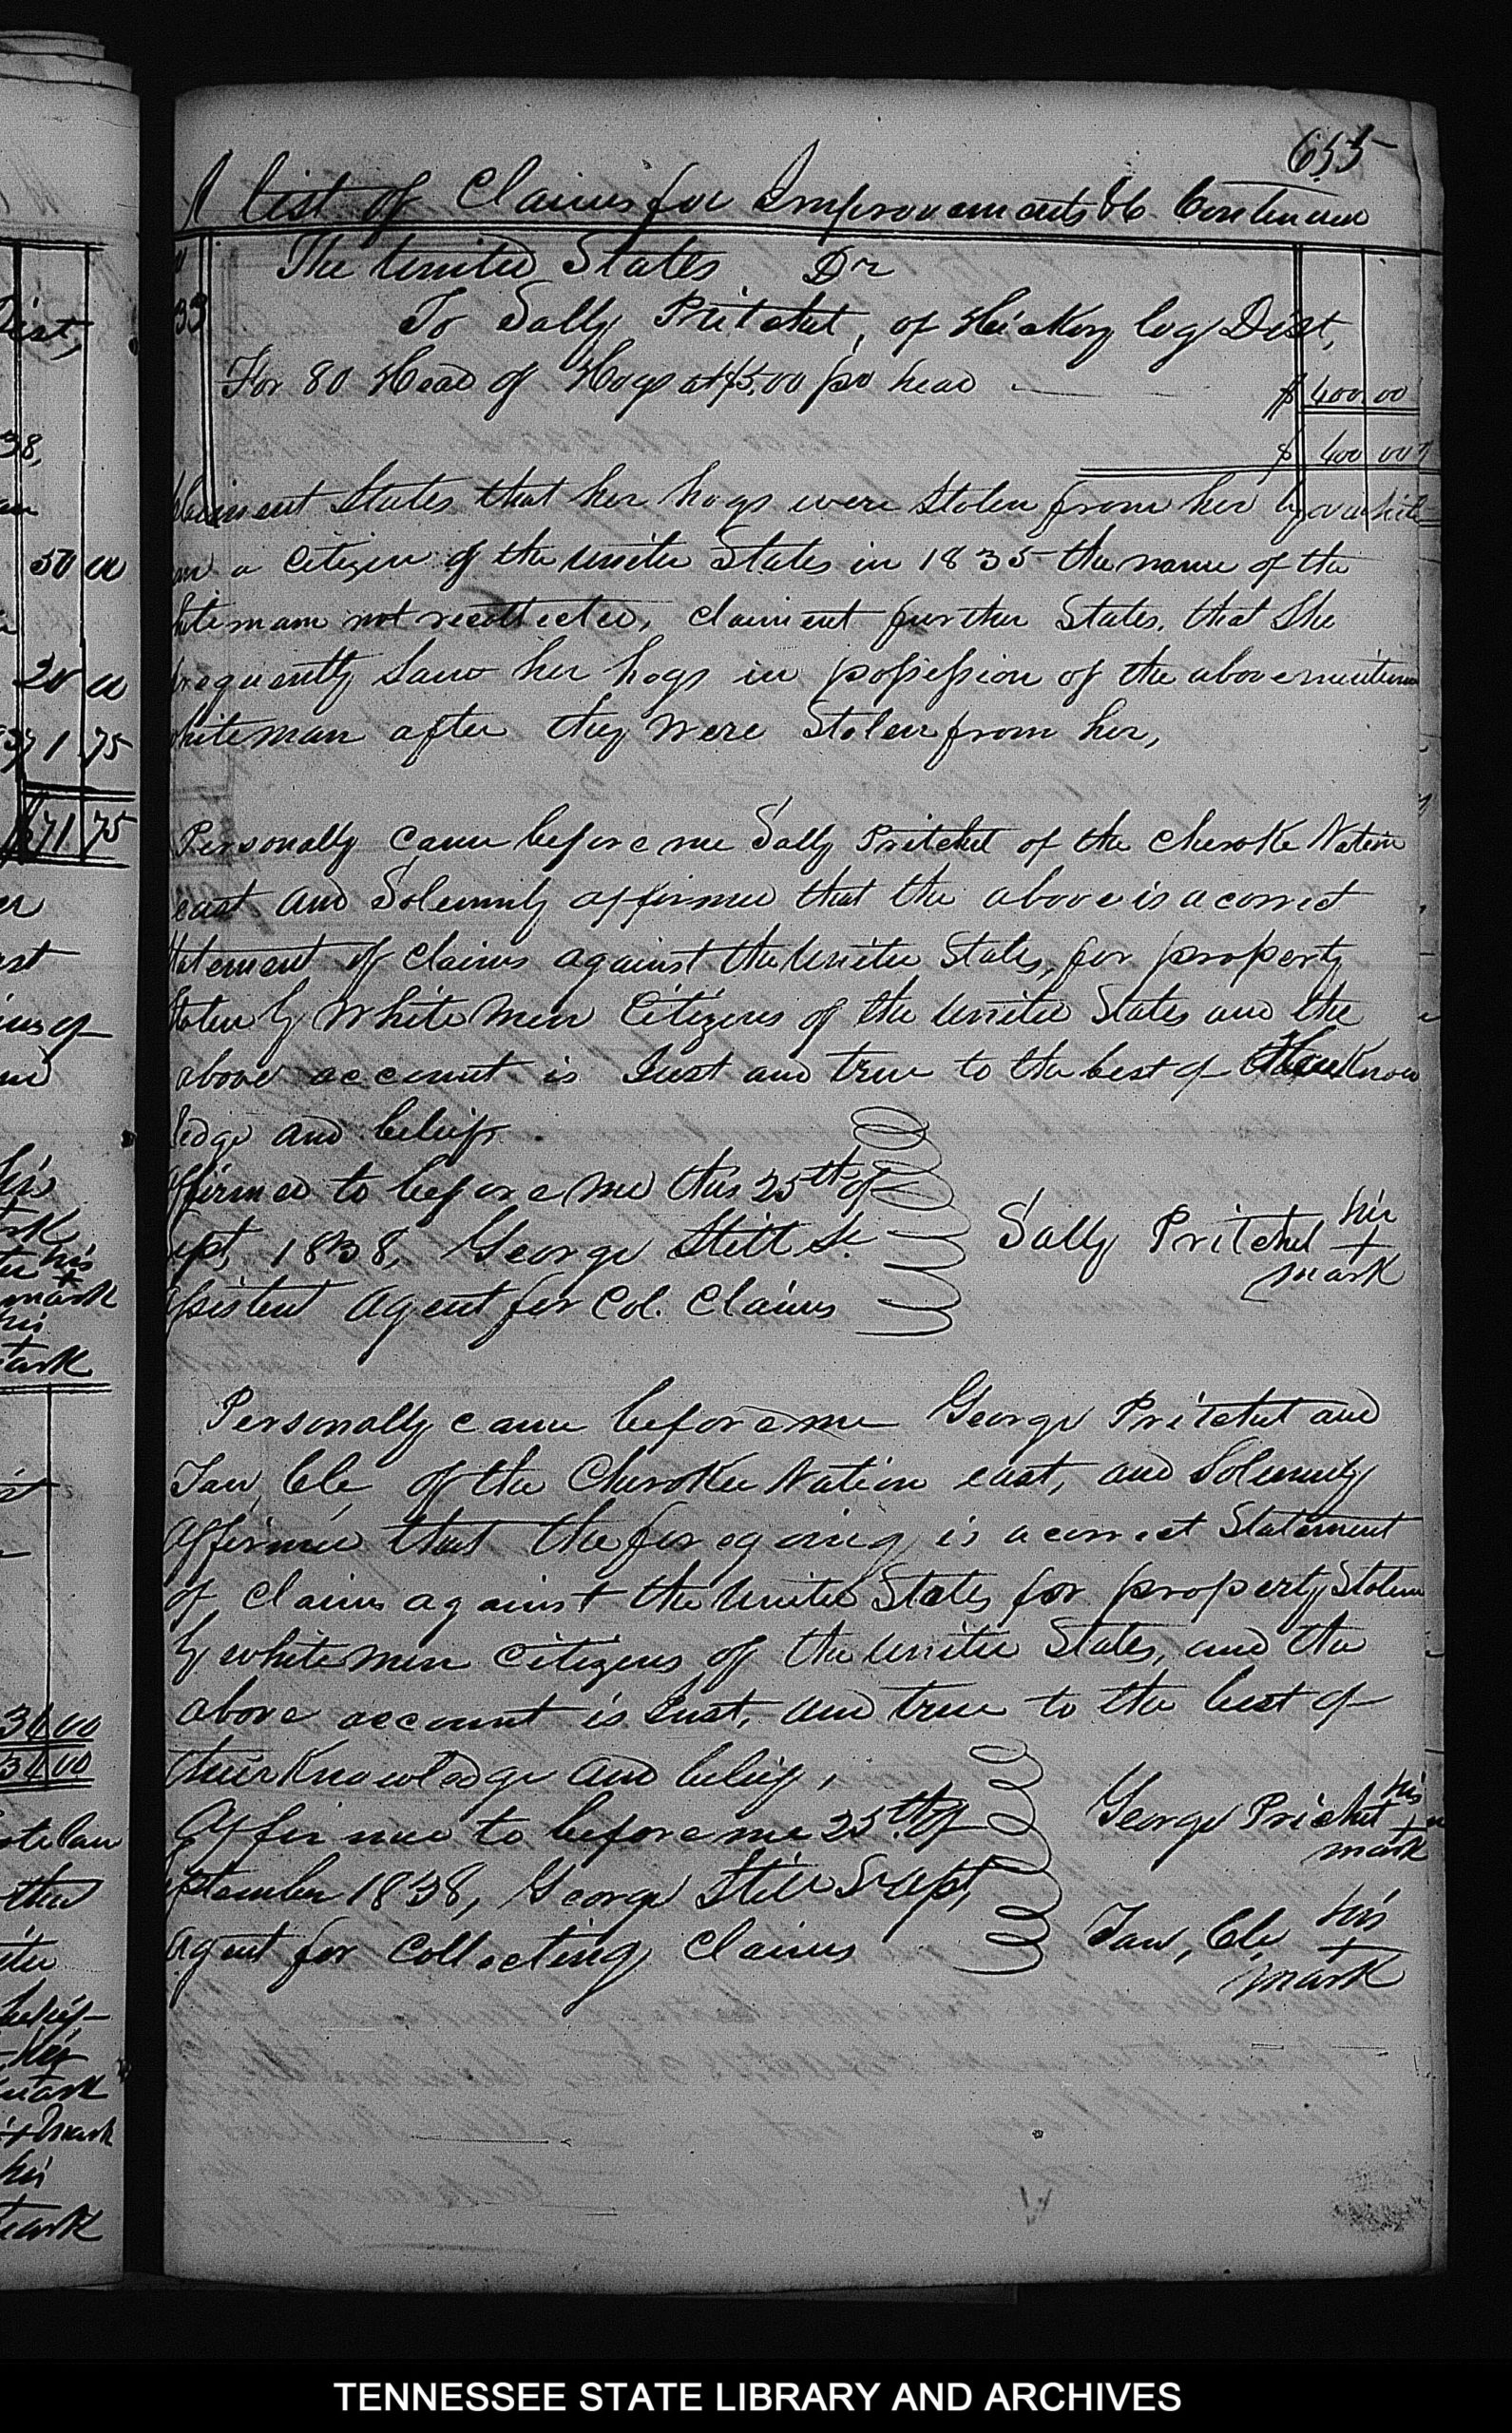 655
A list of Claims for Improvements &c Continued
The United States Dr
33
To Sally Pritchet, of Hickory log Dist,
For 80 Head of Hogs at $5,00 per head $ 400 00
$ 400 00
Claiment States that her hogs were Stolen from her by a white
man a Citizen of the United States in 1835 the name of the
whiteman not recollected, Claiment further States, that She
frequently saw her hogs in possession of the above mentioned
whiteman after they were Stolen from her,
Personally Came before me Sally Pritchet of the Cheroke Nation
east and Solemnly affirmed that the above is a correct
Statement of Claims against the United States, for property
Stolen by White Men Citizens of the United States and the
above account is Just and true to the best of Know
ledge and belief.
Affirmed to before me this 25th of
Sept, 1838, George Still Sr.
Assistent Agent for Col. Claims
Sally Pritchet her
+
mark
Personally came before me George Pritchet and
Taw, Cle, of the Cherokee Nation east, and Solemnly
affirmed that the foregoing is a correct Statement
of Claims against the United States for property Stolen
by white men Citizens of the United States, and the
above account is Just, and true to the best of
their Knowledge and belief,
Affirmed to before me 25th of
September 1838, George Still Sr
Agent for Collecting Claims
George Prichet his
+
mark
Taw, Cle, his
+
mark
Dist,
38,
50 00
20 00
371 75
371 75
his
mark
his
+
mark
his
+
mark
30 00
30 00
mark
mark
his
mark
TENNESSEE STATE LIBRARY AND ARCHIVES